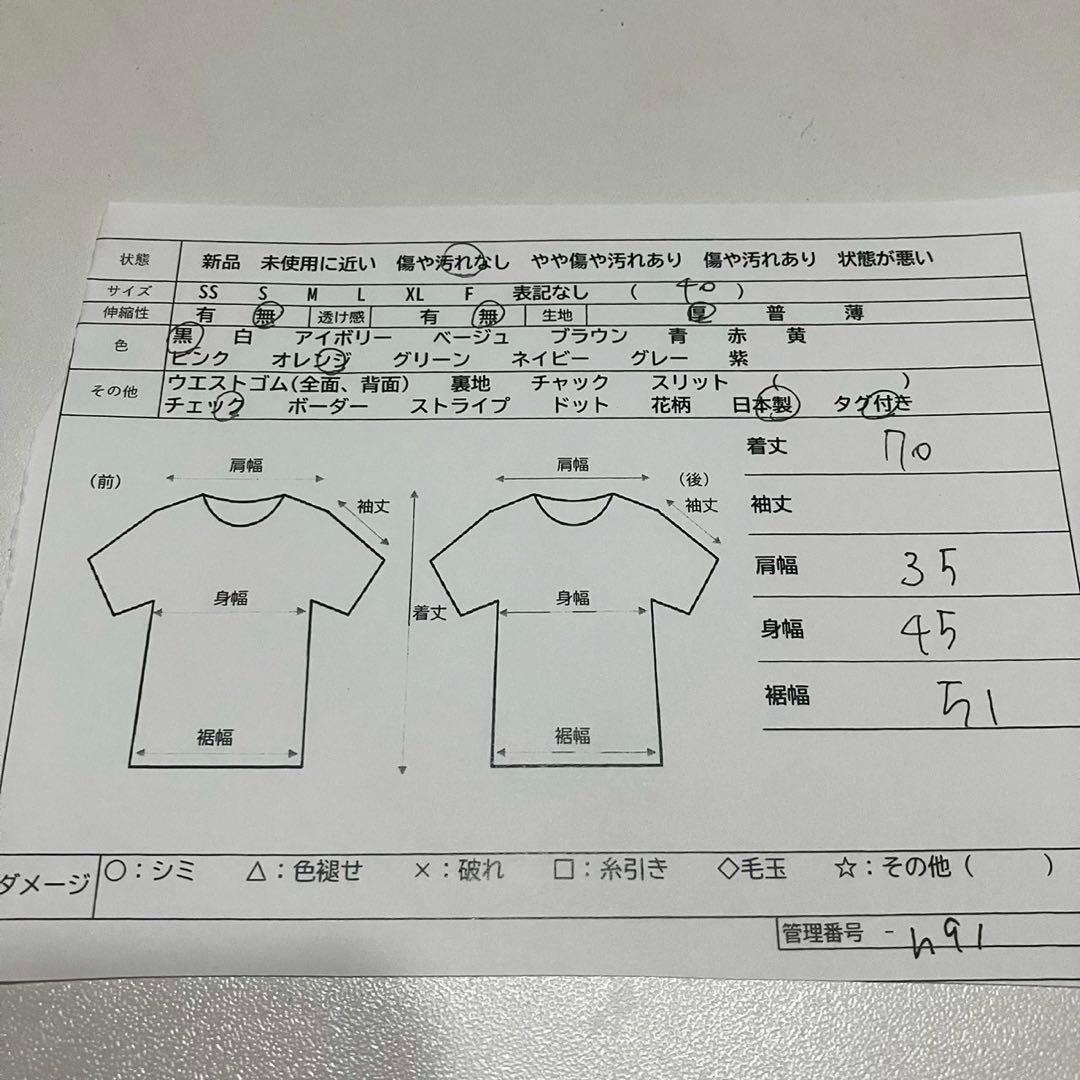 状態 新品 未使用に近い 傷や汚れなし やや傷や汚れあり 傷や汚れあり 状態が悪い
サイズ SS S M L XL F 表記なし ( 40 )
伸縮性 有 無 透け感 有 無 生地 厚 普 薄
色 黒 白 アイボリー ベージュ ブラウン 青 赤 黄
ピンク オレンジ グリーン ネイビー グレー 紫
その他 ウエストゴム(全面、背面) 裏地 チャック スリット ( )
チェック ボーダー ストライプ ドット 花柄 日本製 タグ付き
着丈 70
(前) 肩幅 肩幅 (後)
袖丈 袖丈 袖丈
肩幅 35
身幅 着丈 身幅
身幅 45
裾幅 51
裾幅 裾幅
ダメージ ○:シミ △:色褪せ ×:破れ □:糸引き ◇毛玉 ☆:その他( )
管理番号 - h91